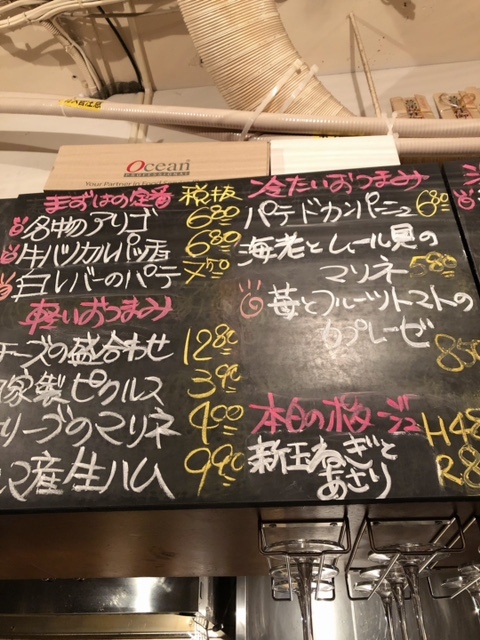 Ocean
PROFESSIONAL
まずはの定番 税抜
名物のアリゴ 680
牛バツカルパッチョ 680
白レバーのパテ 750
軽いおつまみ
チーズの盛合わせ 1280
家製ピクルス 390
リーブのマリネ 400
産生ハム 990
冷たいおつまみ
パテドカンパーニュ 680
海老とムール貝の
マリネ 580
苺とフルーツトマトの
カプレーゼ 850
本日のポタージュ H48
新玉ねぎと R8
あさり